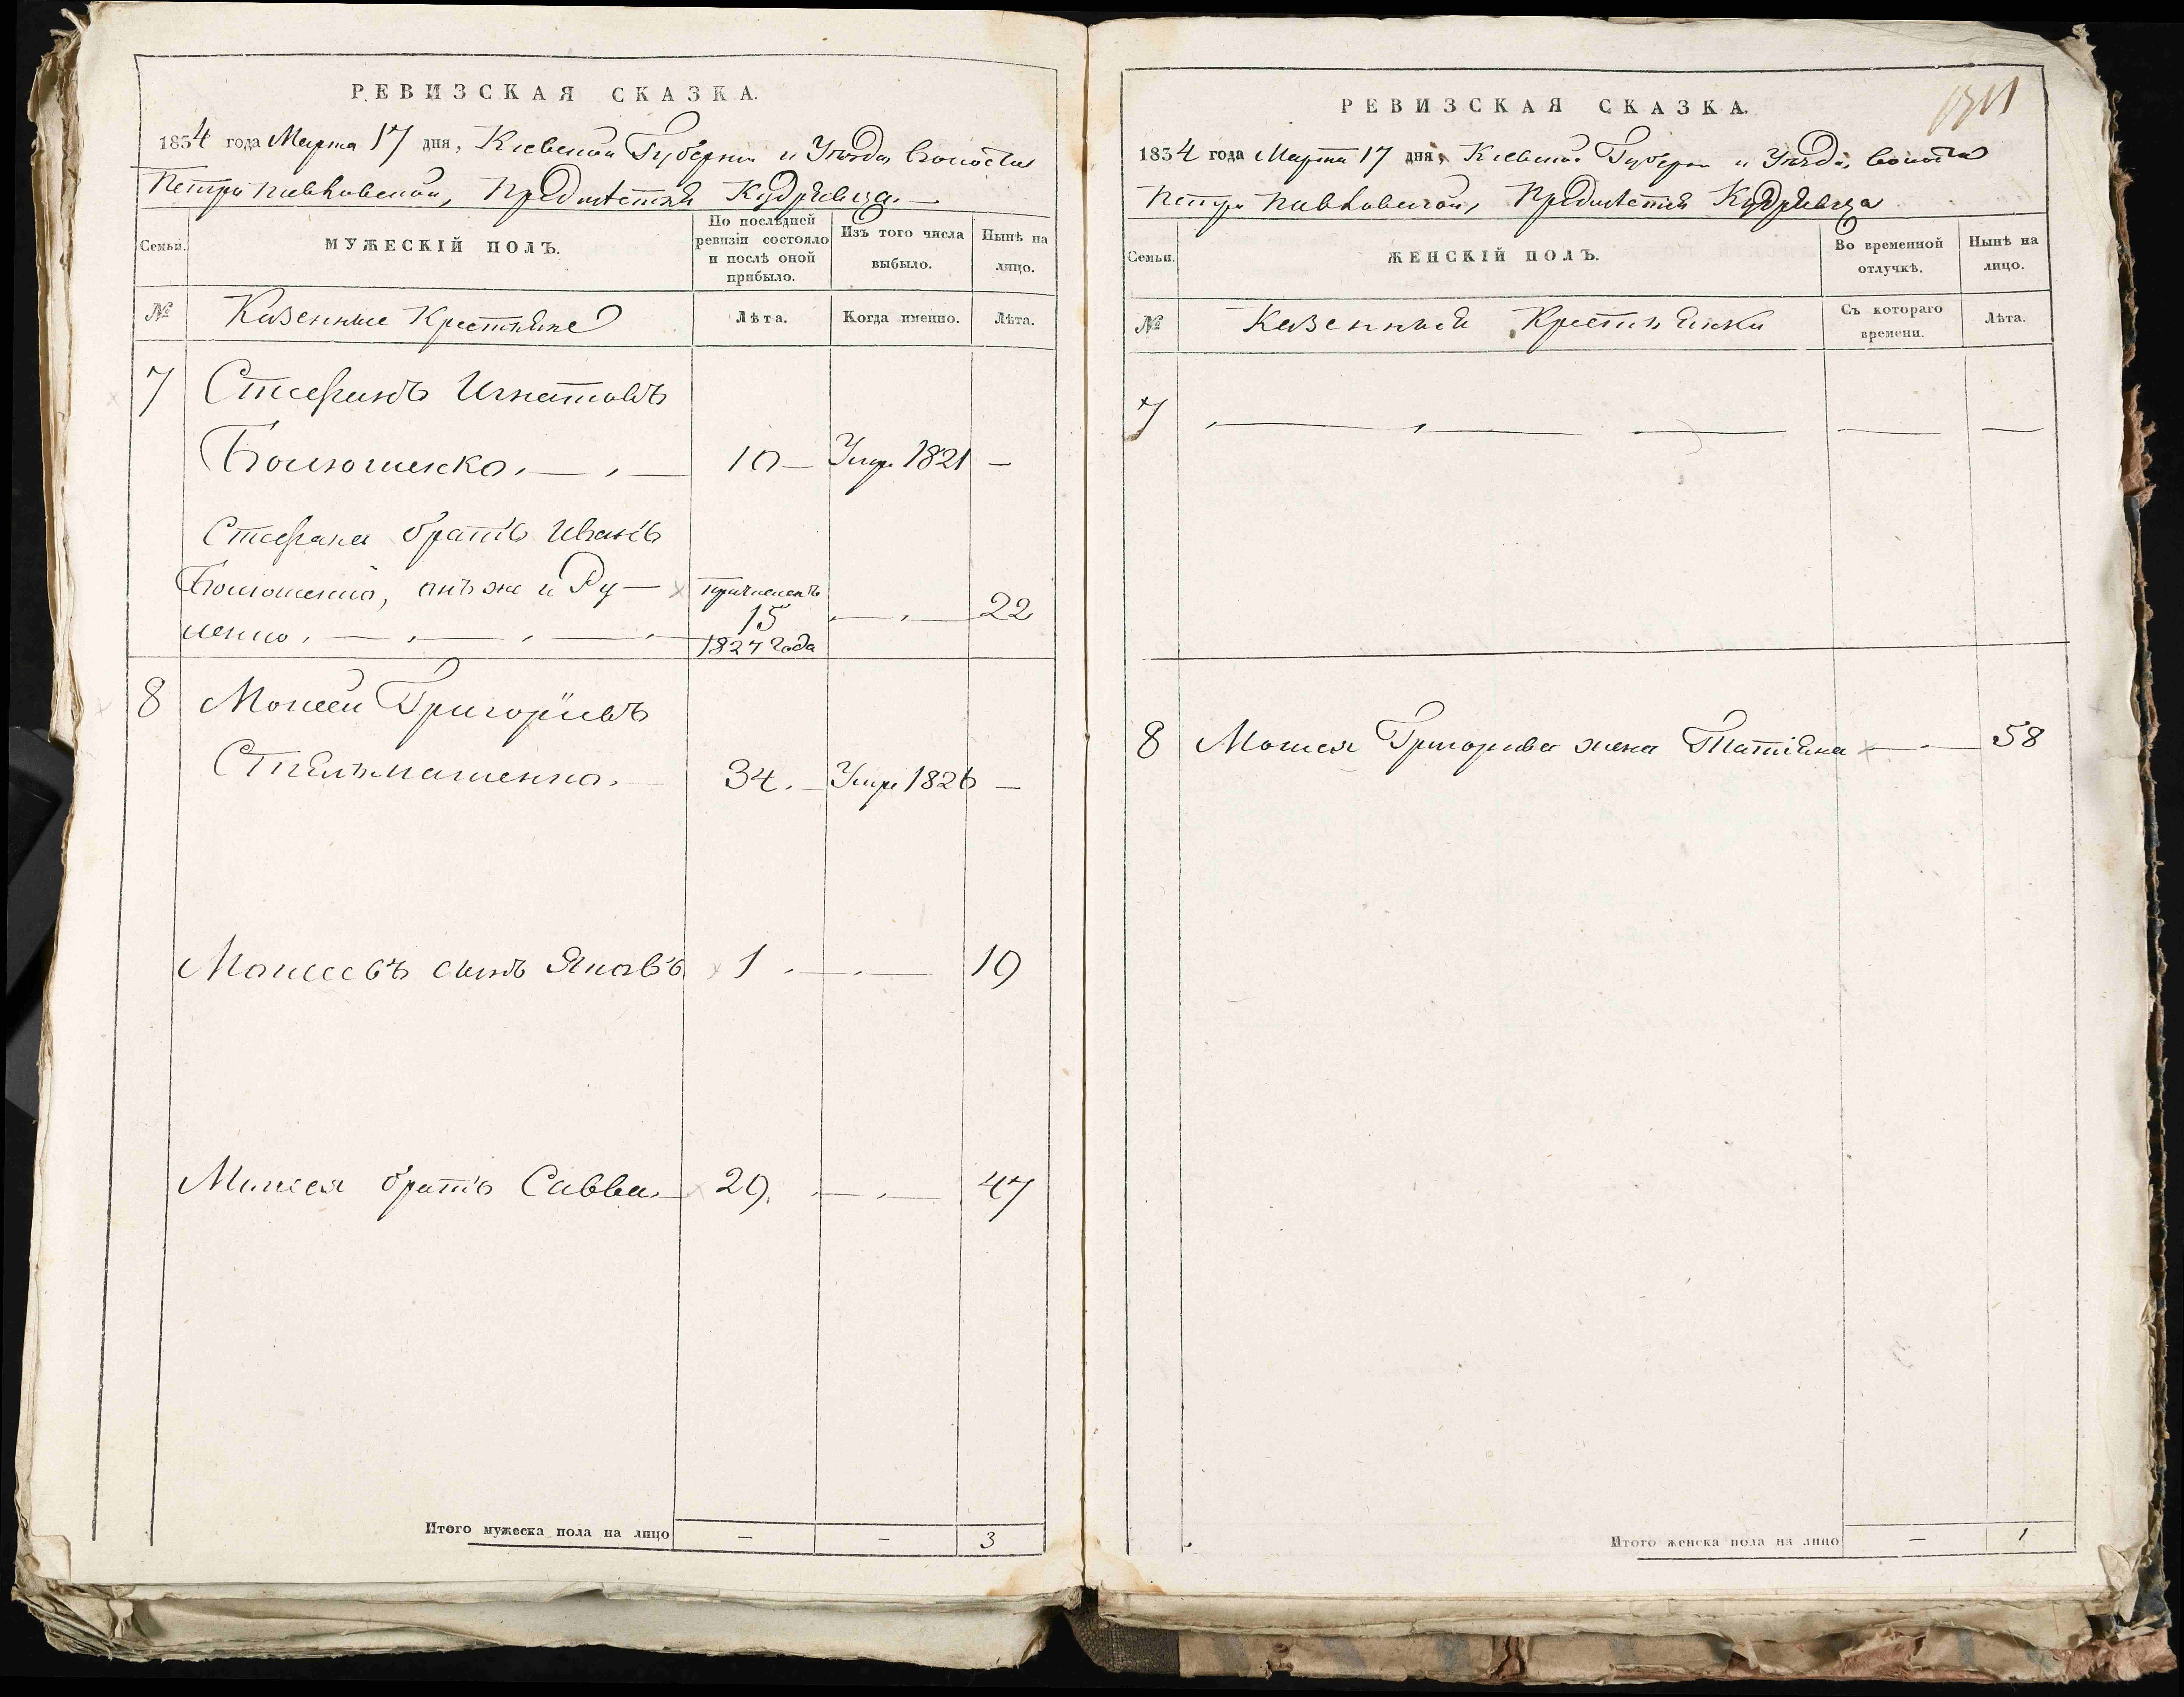 РЕВИЗСКАЯ СКАЗКА.
1834 года Марта 17 дня, Кіевской Губерніи и Уезда волости
Петропавловской, Предместья Кудрявца.
Семьи.
МУЖЕСКІЙ ПОЛЪ.
По последней ревизіи состояло и послѣ оной прибыло.
Изъ того числа выбыло.
Нынѣ на лицо.
№
Казенные Крестьяне
Лѣта.
Когда именно.
Лѣта.
7 Стефанъ Игнатовъ
10 Умре 1821 —
Стефана братъ Иванъ
онъ же и Ру- причисленъ
15 22
ленко. 1827 года
8 Моисей Григоріевъ
Стельмашенко. 34. Умре 1826 —
Моисеевъ сынъ Яковъ 1 19
Моисея братъ Савва. 29. 47
Итого мужеска пола на лицо — — 3
РЕВИЗСКАЯ СКАЗКА.
1834 года Марта 17 дня, Кіевской Губерніи и Уезда, волости
Петропавловской, Предместья Кудрявца
Семьи.
ЖЕНСКІЙ ПОЛЪ.
Во временной отлучкѣ.
Нынѣ на лицо.
№
Казенныя Крестьянки
Съ котораго времени.
Лѣта.
7 — — — — —
8 Моисея Григорьева жена Татіяна — 58
Итого женска пола на лицо — 1